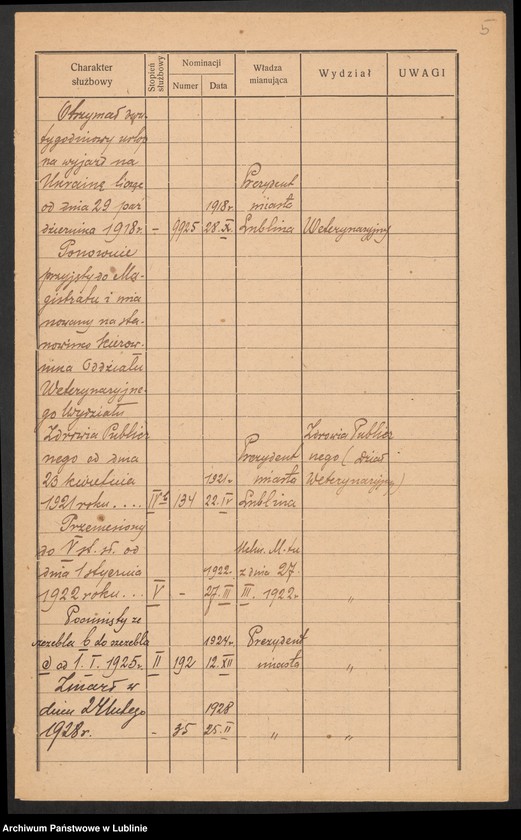 5
Charakter służbowy
Stopień służbowy
Nominacji
Numer
Data
Władza mianująca
Wydział
UWAGI
Otrzymał
tygodniowy urlop
na wyjazd na
Ukrainę licząc
Prezydent
od dnia 29 paź
1918r.
miasta
dziernika 1918r. - 9925 28.X. Lublina Weterynaryjny
Ponownie
przyjęty do Ma-
gistratu i mia
nowany na sta-
nowisko kierow-
nika Oddziału
Weterynaryjne-
go Wydziału
Zdrowia Public
Zdrowia Public
nego od dnia
Prezydent
nego (dział
23 kwietnia
1921r.
miasta
Weterynaryjny)
1921 roku.... IVb 134 22.IV Lublina
Przeniesiony
do V st. sł. od
Uchw. M-tu
dnia 1 stycznia
1922.
z dnia 27.
1922 roku... V - 27.III III. 1922r. "
Posunięty ze
szczebla b do szczebla
1924r.
Prezydent
d od 1.I.1925r. II 192 12.XII miasta "
Zmarł w
dniu 24 lutego
1928
1928r. - 35 25.II " "
Archiwum Państwowe w Lublinie